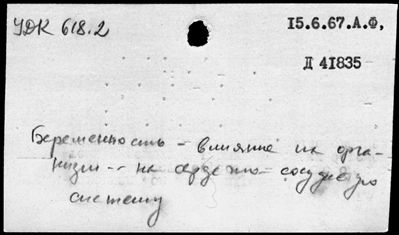 УДК 618.2
15.6.67.А.Ф,
Д 41835
Беременность – влияние на орга-
низм -- на сердечно-сосудистую
систему